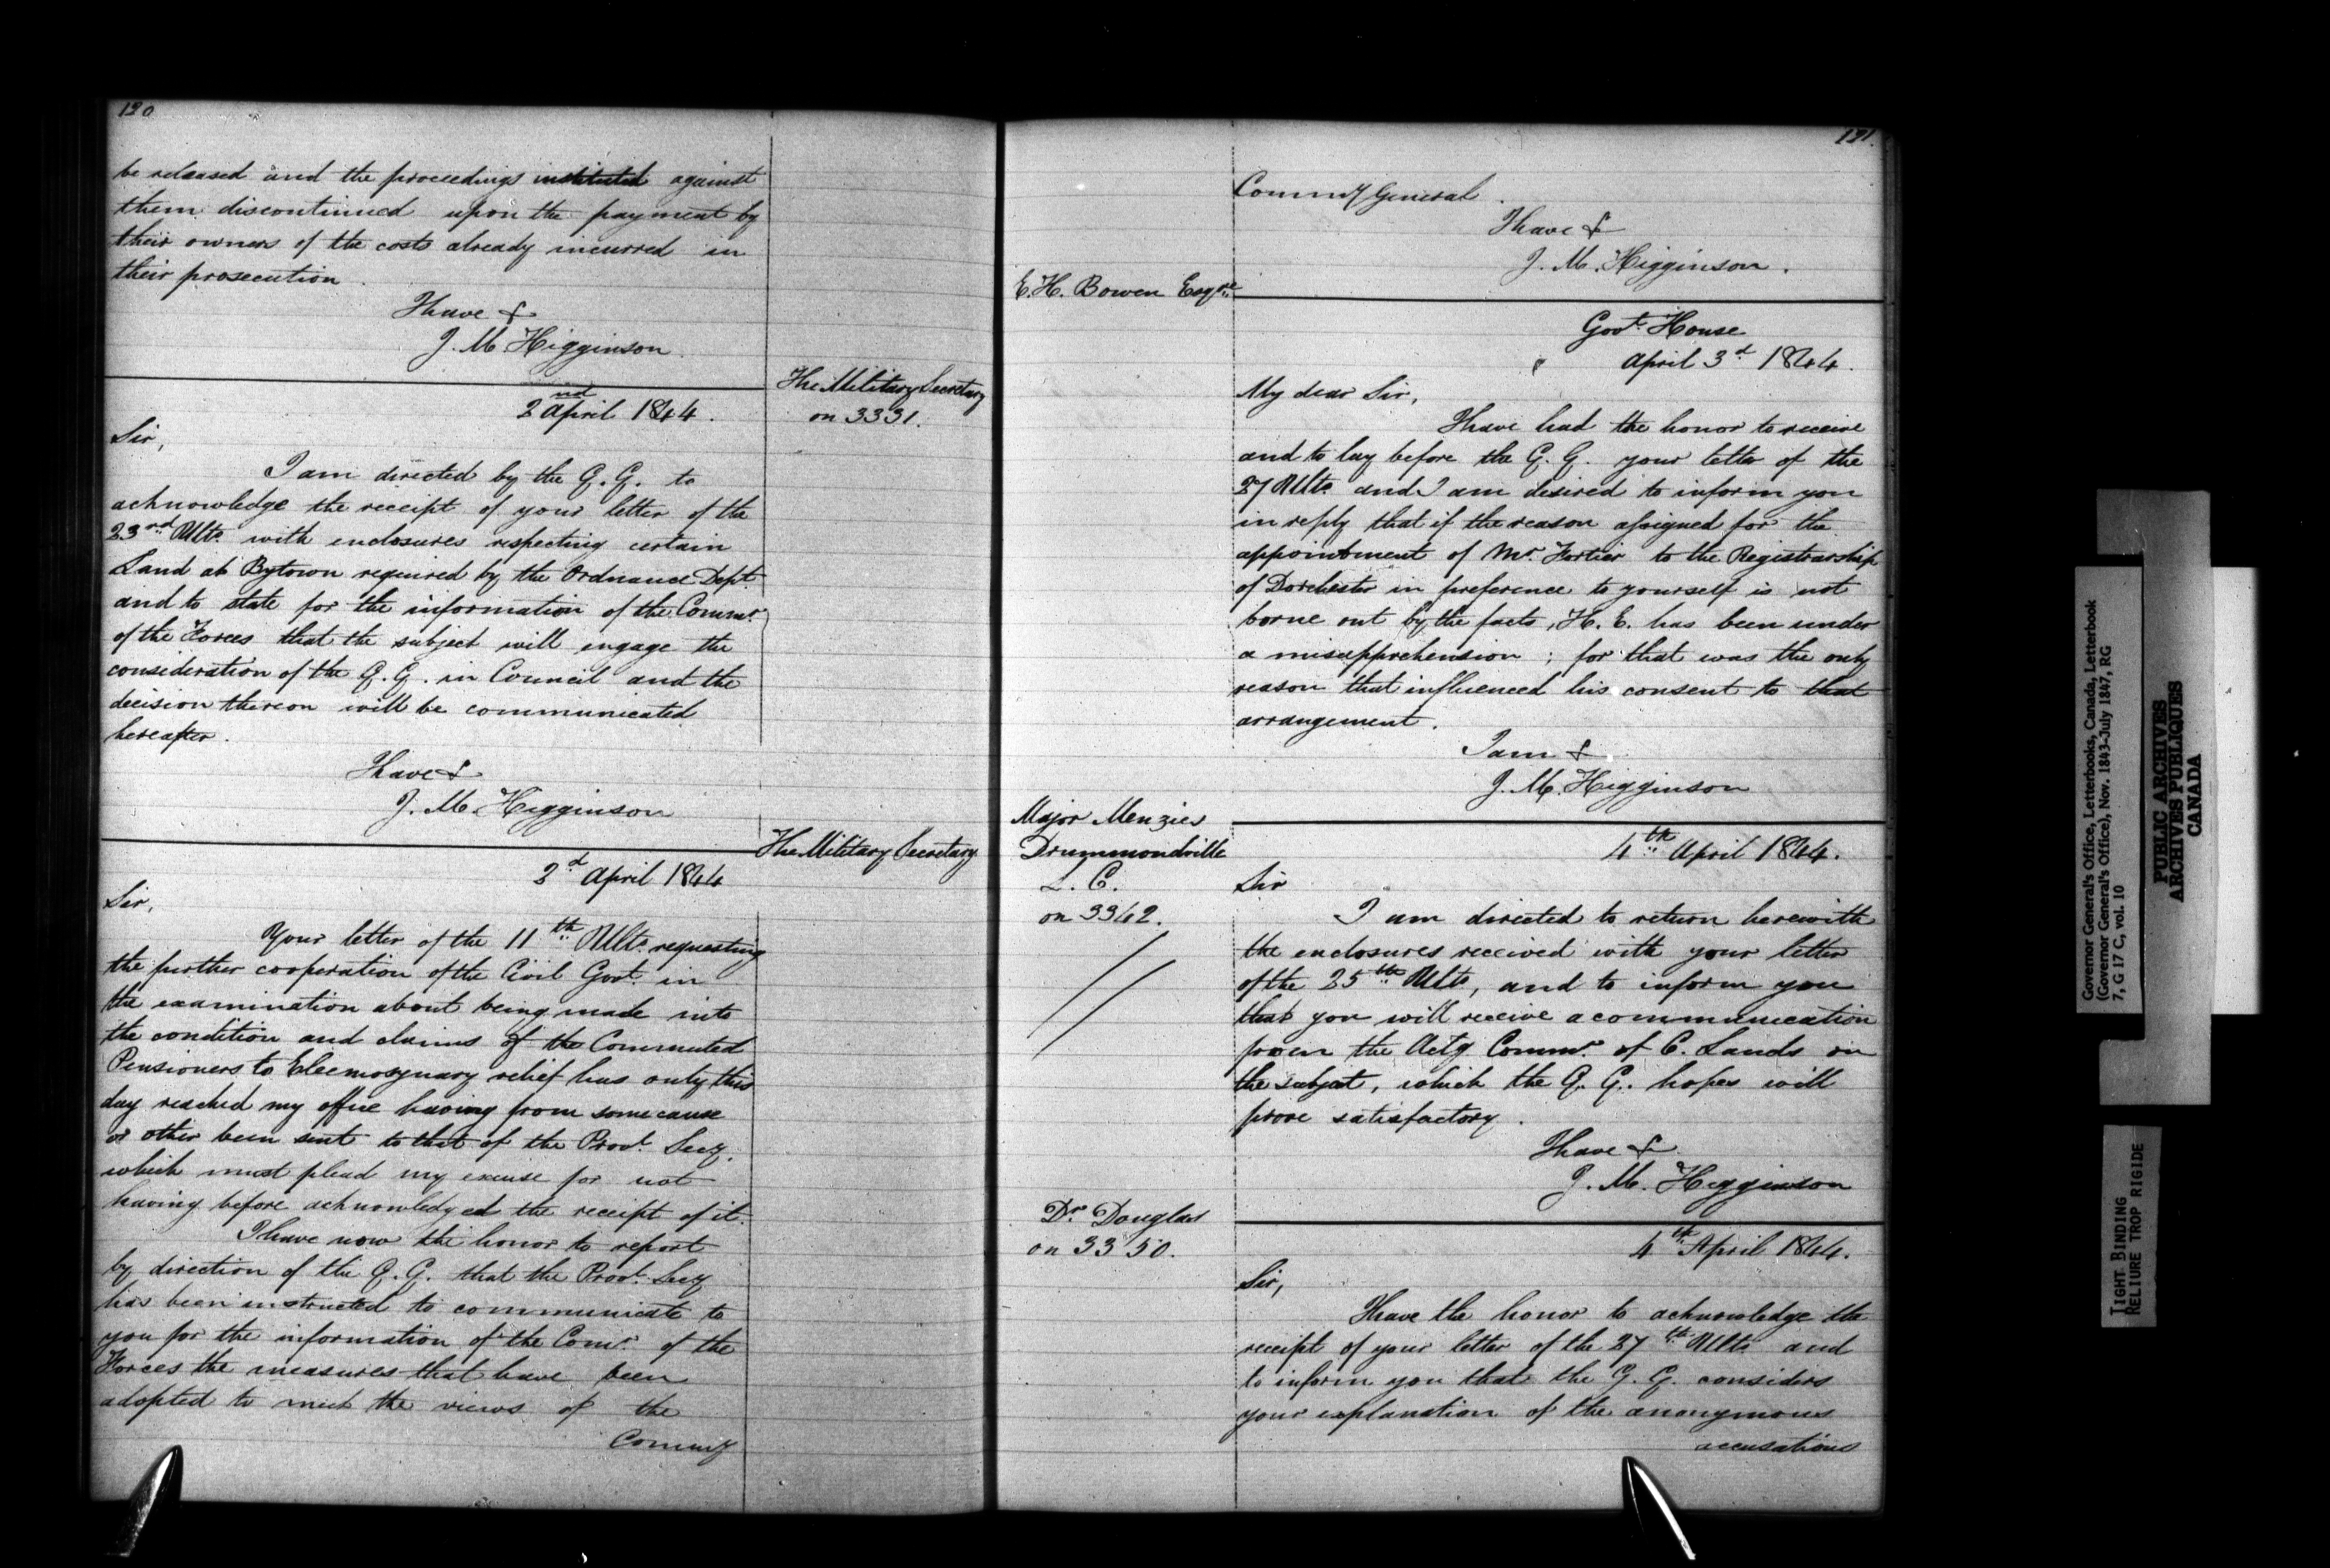 120
be released and the proceedings instituted against
them discontinued upon the payment by
their owners of the costs already incurred in
their prosecution.
I have &
J. M. Higginson.
The Military Secretary
on 3331.
2nd April 1844.
Sir,
I am directed by the G. G. to
acknowledge the receipt of your letter of the
23rd Ulto. with enclosures respecting certain
Land at Bytown required by the Ordnance Dept.
and to state for the information of the Commr.
of the Forces that the subject will engage the
consideration of the G. G. in Council and the
decision thereon will be communicated
hereafter.
I have &
J. M. Higginson
The Military Secretary
2d April 1844
Sir,
Your letter of the 11th Ulto. requesting
the further cooperation of the Civil Govt. in
the examination about being made into
the condition and claims of the Commuted
Pensioners to Eleemosynary relief has only this
day reached my office having from some cause
or other been sent to that of the Provl. Secy.
which must plead my excuse for not
having before acknowledged the receipt of it.
I have now the honor to report
by direction of the G. G. that the Provl. Secy
has been instructed to communicate to
you for the information of the Comr. of the
Forces the measures that have been
adopted to meet the views of the
Commy
121.
Commy General.
I have &
J. M. Higginson.
E. H. Bowen Esqre.
Govt. House
April 3d 1844.
My dear Sir,
I have had the honor to receive
and to lay before the G. G. your letter of the
27 Ulto. and I am desired to inform you
in reply that if the reason assigned for the
appointment of Mr. Fortier to the Registrarship
of Dorchester in preference to yourself is not
borne out by the facts, H. E. has been under
a misapprehension; for that was the only
reason that influenced his consent to that
arrangement.
I am &
J. M. Higginson
Major Menzies
Drummondville
L. C.
on 3342.
4th April 1844.
Sir
I am directed to return herewith
the enclosures received with your letter
of the 25th Ulto, and to inform you
that you will receive a communication
from the Actg Commr. of C. Lands on
the subject, which the G. G. hopes will
prove satisfactory.
I have &
J. M. Higginson
Dr. Douglas
on 3350.
4th April 1844.
Sir,
I have the honor to acknowledge the
receipt of your letter of the 27th Ulto. and
to inform you that the G. G. considers
your explanation of the anonymous
accusations
Governor General's Office, Letterbooks, Canada, Letterbook
(Governor General's Office), Nov. 1843-July 1847, RG
7, G 17 C, vol. 10
PUBLIC ARCHIVES
ARCHIVES PUBLIQUES
CANADA
TIGHT BINDING
RELIURE TROP RIGIDE